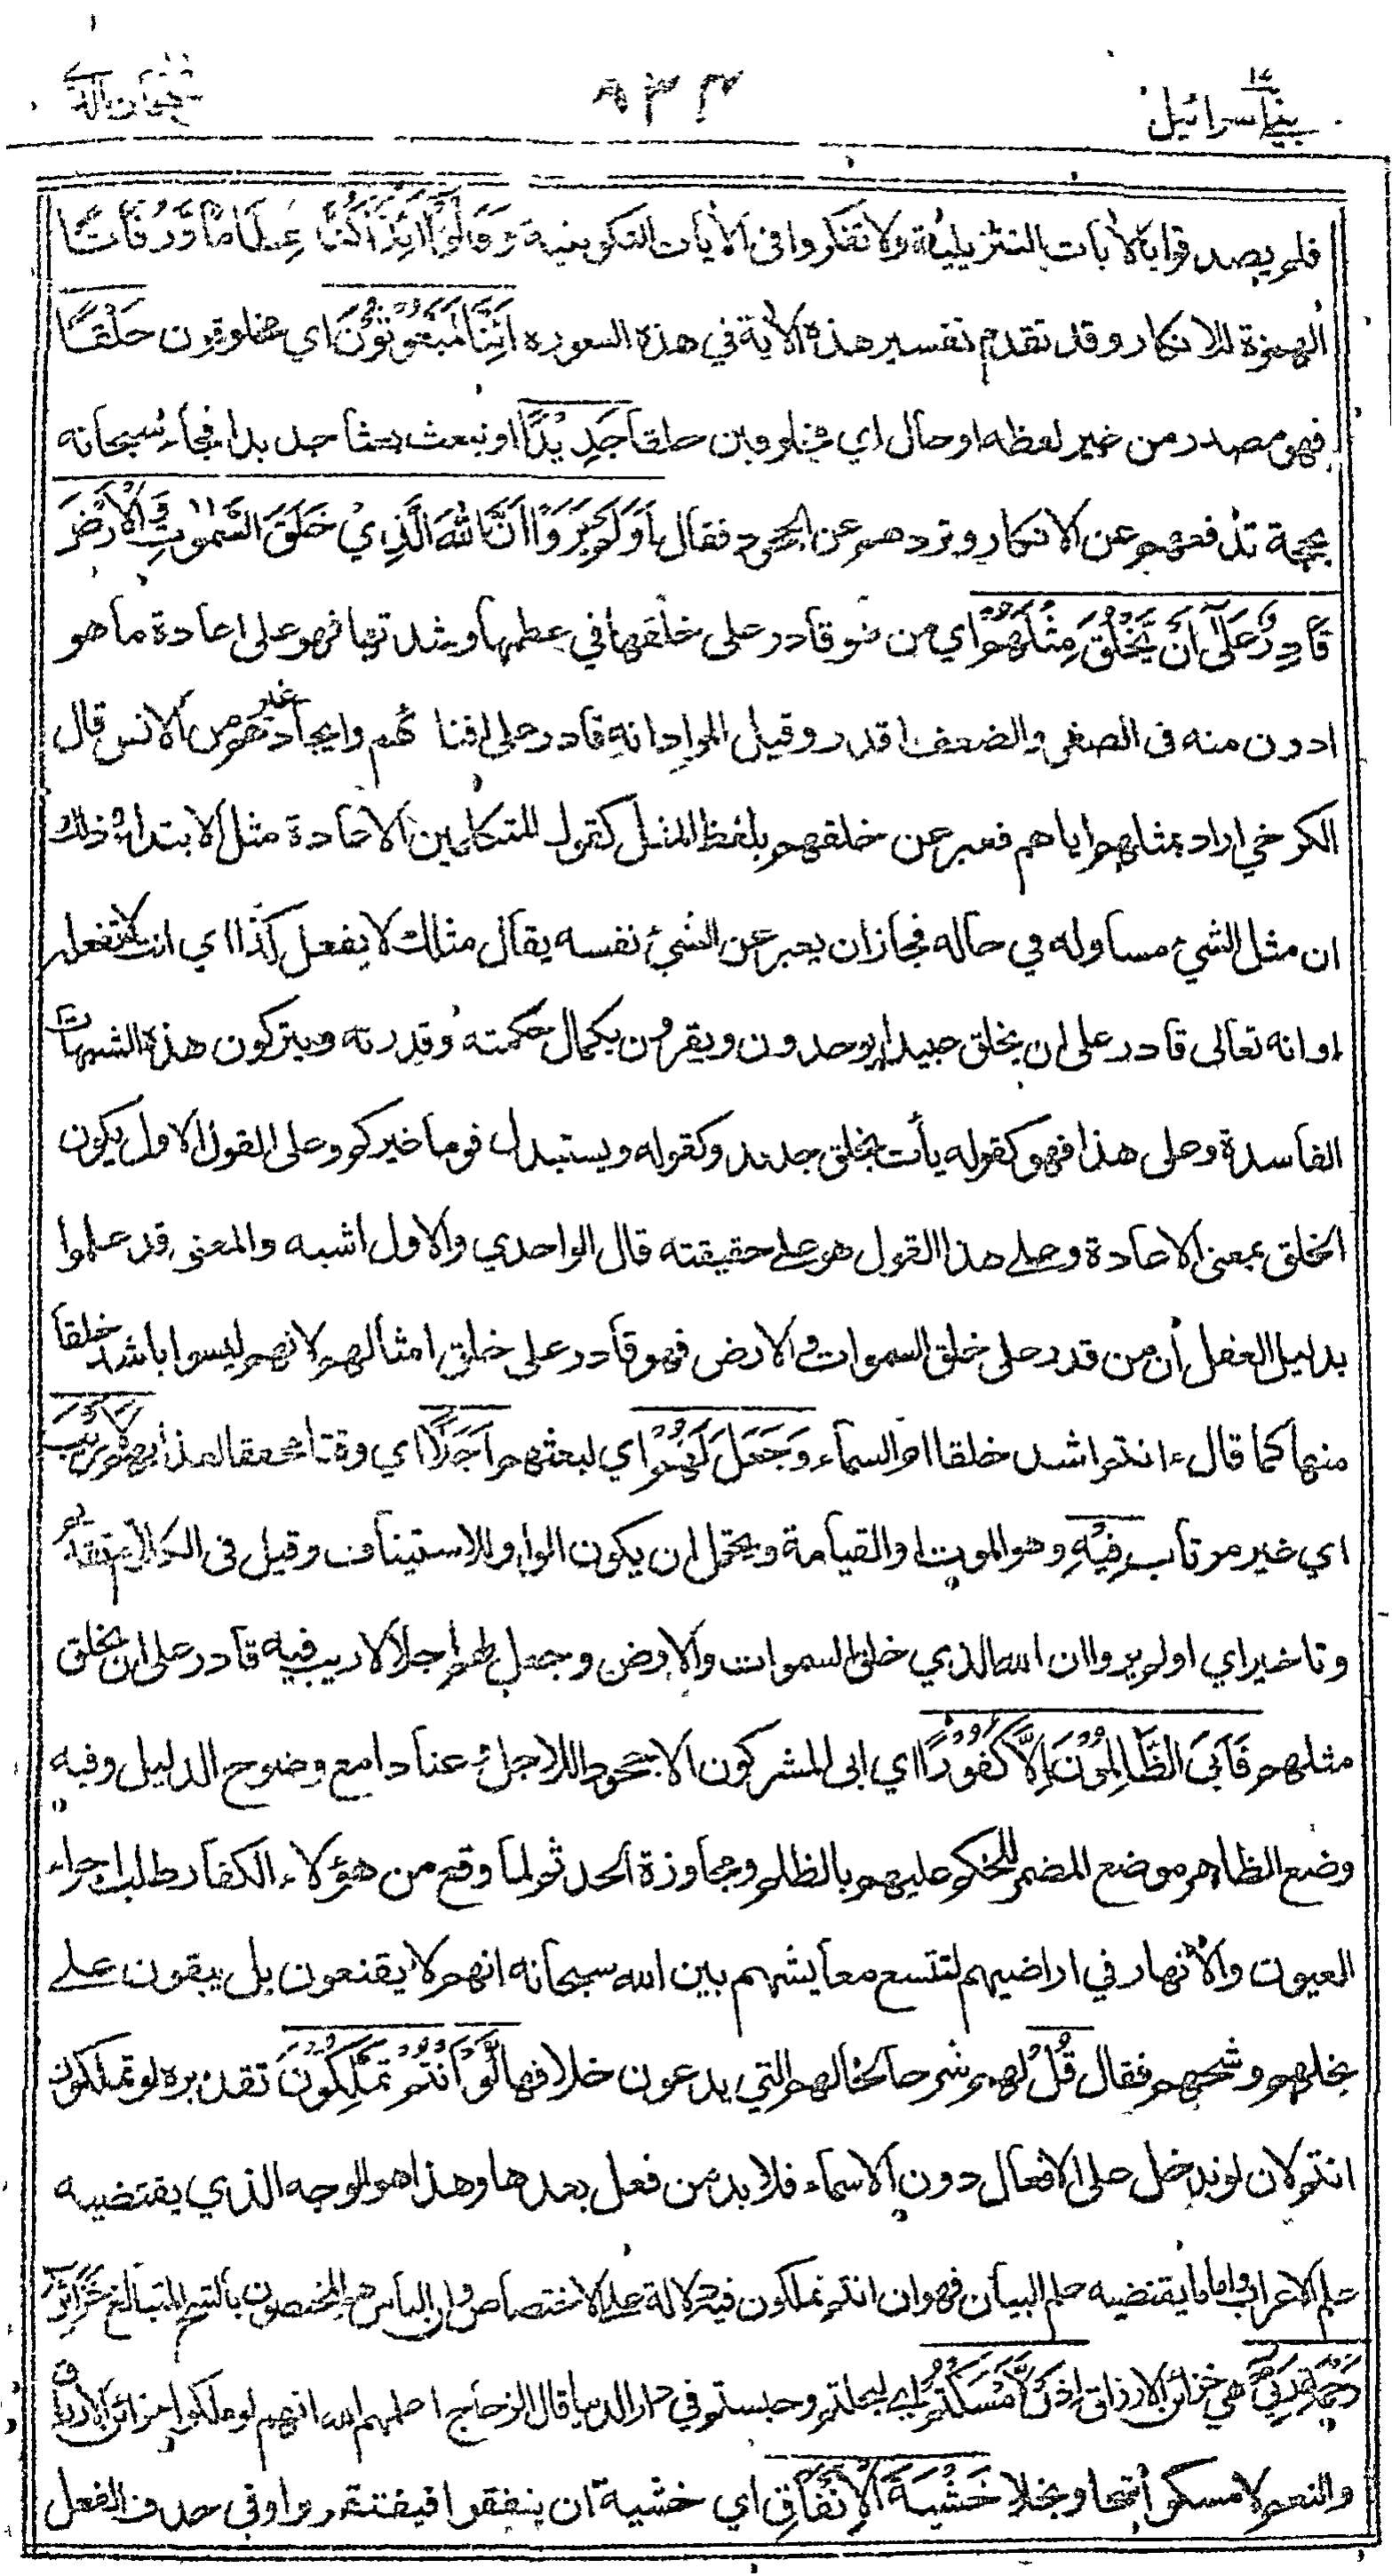 بني اسرائيل ١٥ ٩٣٢ سبحان الذي
فلم يصدقوا بالأيات التنزيلية ولا تفكروا في الأيات التكوينية وَقَالُوْٓا ءَاِذَا كُنَّا عِظَامًا وَّرُفَاتًا
الهمزة للانكار وقد تقدم تفسير هذه الأية في هذه السورة اَئِنَّا لَمَبْعُوْثُوْنَ اي مخلوقون خَلْقًا
فهو مصدر من غير لفظه او حال اي مخلوقين خلقا جَدِيْدًا او نبعث بعثا جديدا فجاء سبحانه
بحجة تدفعهم عن الانكار وتردهم عن الجحود فقال اَوَلَمْ يَرَوْا اَنَّ اللهَ الَّذِيْ خَلَقَ السَّمٰوٰتِ وَالْاَرْضَ
قَادِرٌ عَلٰٓى اَنْ يَّخْلُقَ مِثْلَهُمْ اي من هو قادر على خلقها في عظمها وشدتها فهو على اعادة ما هو
ادون منه في الصغر والضعف اقدر وقيل المراد انه قادر على افنائهم وايجاد غيرهم من الانس قال
الكرخي اراد بمثلهم اياهم فعبر عن خلقهم بلفظ المثل كقول المتكلمين الاعادة مثل الابتداء وذلك
ان مثل الشيء مساو له في حاله فجاز ان يعبر عن الشيء نفسه يقال مثلك لا يفعل كذا اي انت لا تفعله
او انه تعالى قادر على ان يخلق عبيدا يوحدون ويقرون بكمال حكمته وقدرته ويتركون هذه الشبهات
الفاسدة وعلى هذا فهو كقوله يأت بخلق جديد وكقوله ويستبدل قوما غيركم وعلى القول الاول يكون
الخلق بمعنى الاعادة وعلى هذا القول هو على حقيقته قال الواحدي والاول اشبه والمعنى قد علموا
بدليل العقل أن من قدر على خلق السموات والارض فهو قادر على خلق امثالهم لانهم ليسوا باشد خلقا
منها كما قال ءانتم اشد خلقا ام السماء وَجَعَلَ لَهُمْ اي لبعثهم اَجَلًا اي وقتا محققا لعذابهم لَّا رَيْبَ
اي غير مرتاب فِيْهِ وهو الموت او القيامة ويحتمل ان يكون الواو للاستيناف وقيل في الكلام تقديم
وتاخير اي اولم يروا ان الله الذي خلق السموات والارض وجعل لهم اجلا لا ريب فيه قادر على ان يخلق
مثلهم فَاَبَى الظَّالِمُوْنَ اِلَّا كُفُوْرًا اي ابى المشركون الا جحودا للاجل عنادا مع وضوح الدليل وفيه
وضع الظاهر موضع المضمر للحكم عليهم بالظلم ومجاوزة الحد ثم لما وقع من هؤلاء الكفار طلب اجراء
العيون والأنهار في اراضيهم لتتسع معايشهم بين الله سبحانه انهم لا يقنعون بل يبقون على
بخلهم وشحهم فقال قُلْ لهم شرحا لحالهم التي يدعون خلافها لَّوْ اَنْتُمْ تَمْلِكُوْنَ تقديره لو تملكون
انتم لان لو تدخل على الافعال دون الاسماء فلا بد من فعل بعدها وهذا هو الوجه الذي يقتضيه
علم الاعراب واما ما يقتضيه علم البيان فهو ان انتم تملكون فيه دلالة على الاختصاص وان الناس هم المختصون بالشح المتبالغ خَزَآئِنَ
رَحْمَةِ رَبِّيْٓ هي خزائن الارزاق اِذًا لَّاَمْسَكْتُمْ اي لبخلتم وحبستم في دار الدنيا قال الزجاج اعلمهم الله انهم لو ملكوا خزائن الارزاق
والنعم لامسكوا شحا وبخلا خَشْيَةَ الْاِنْفَاقِ اي خشية ان ينفقوا فيفتقروا وفي حذف الفعل